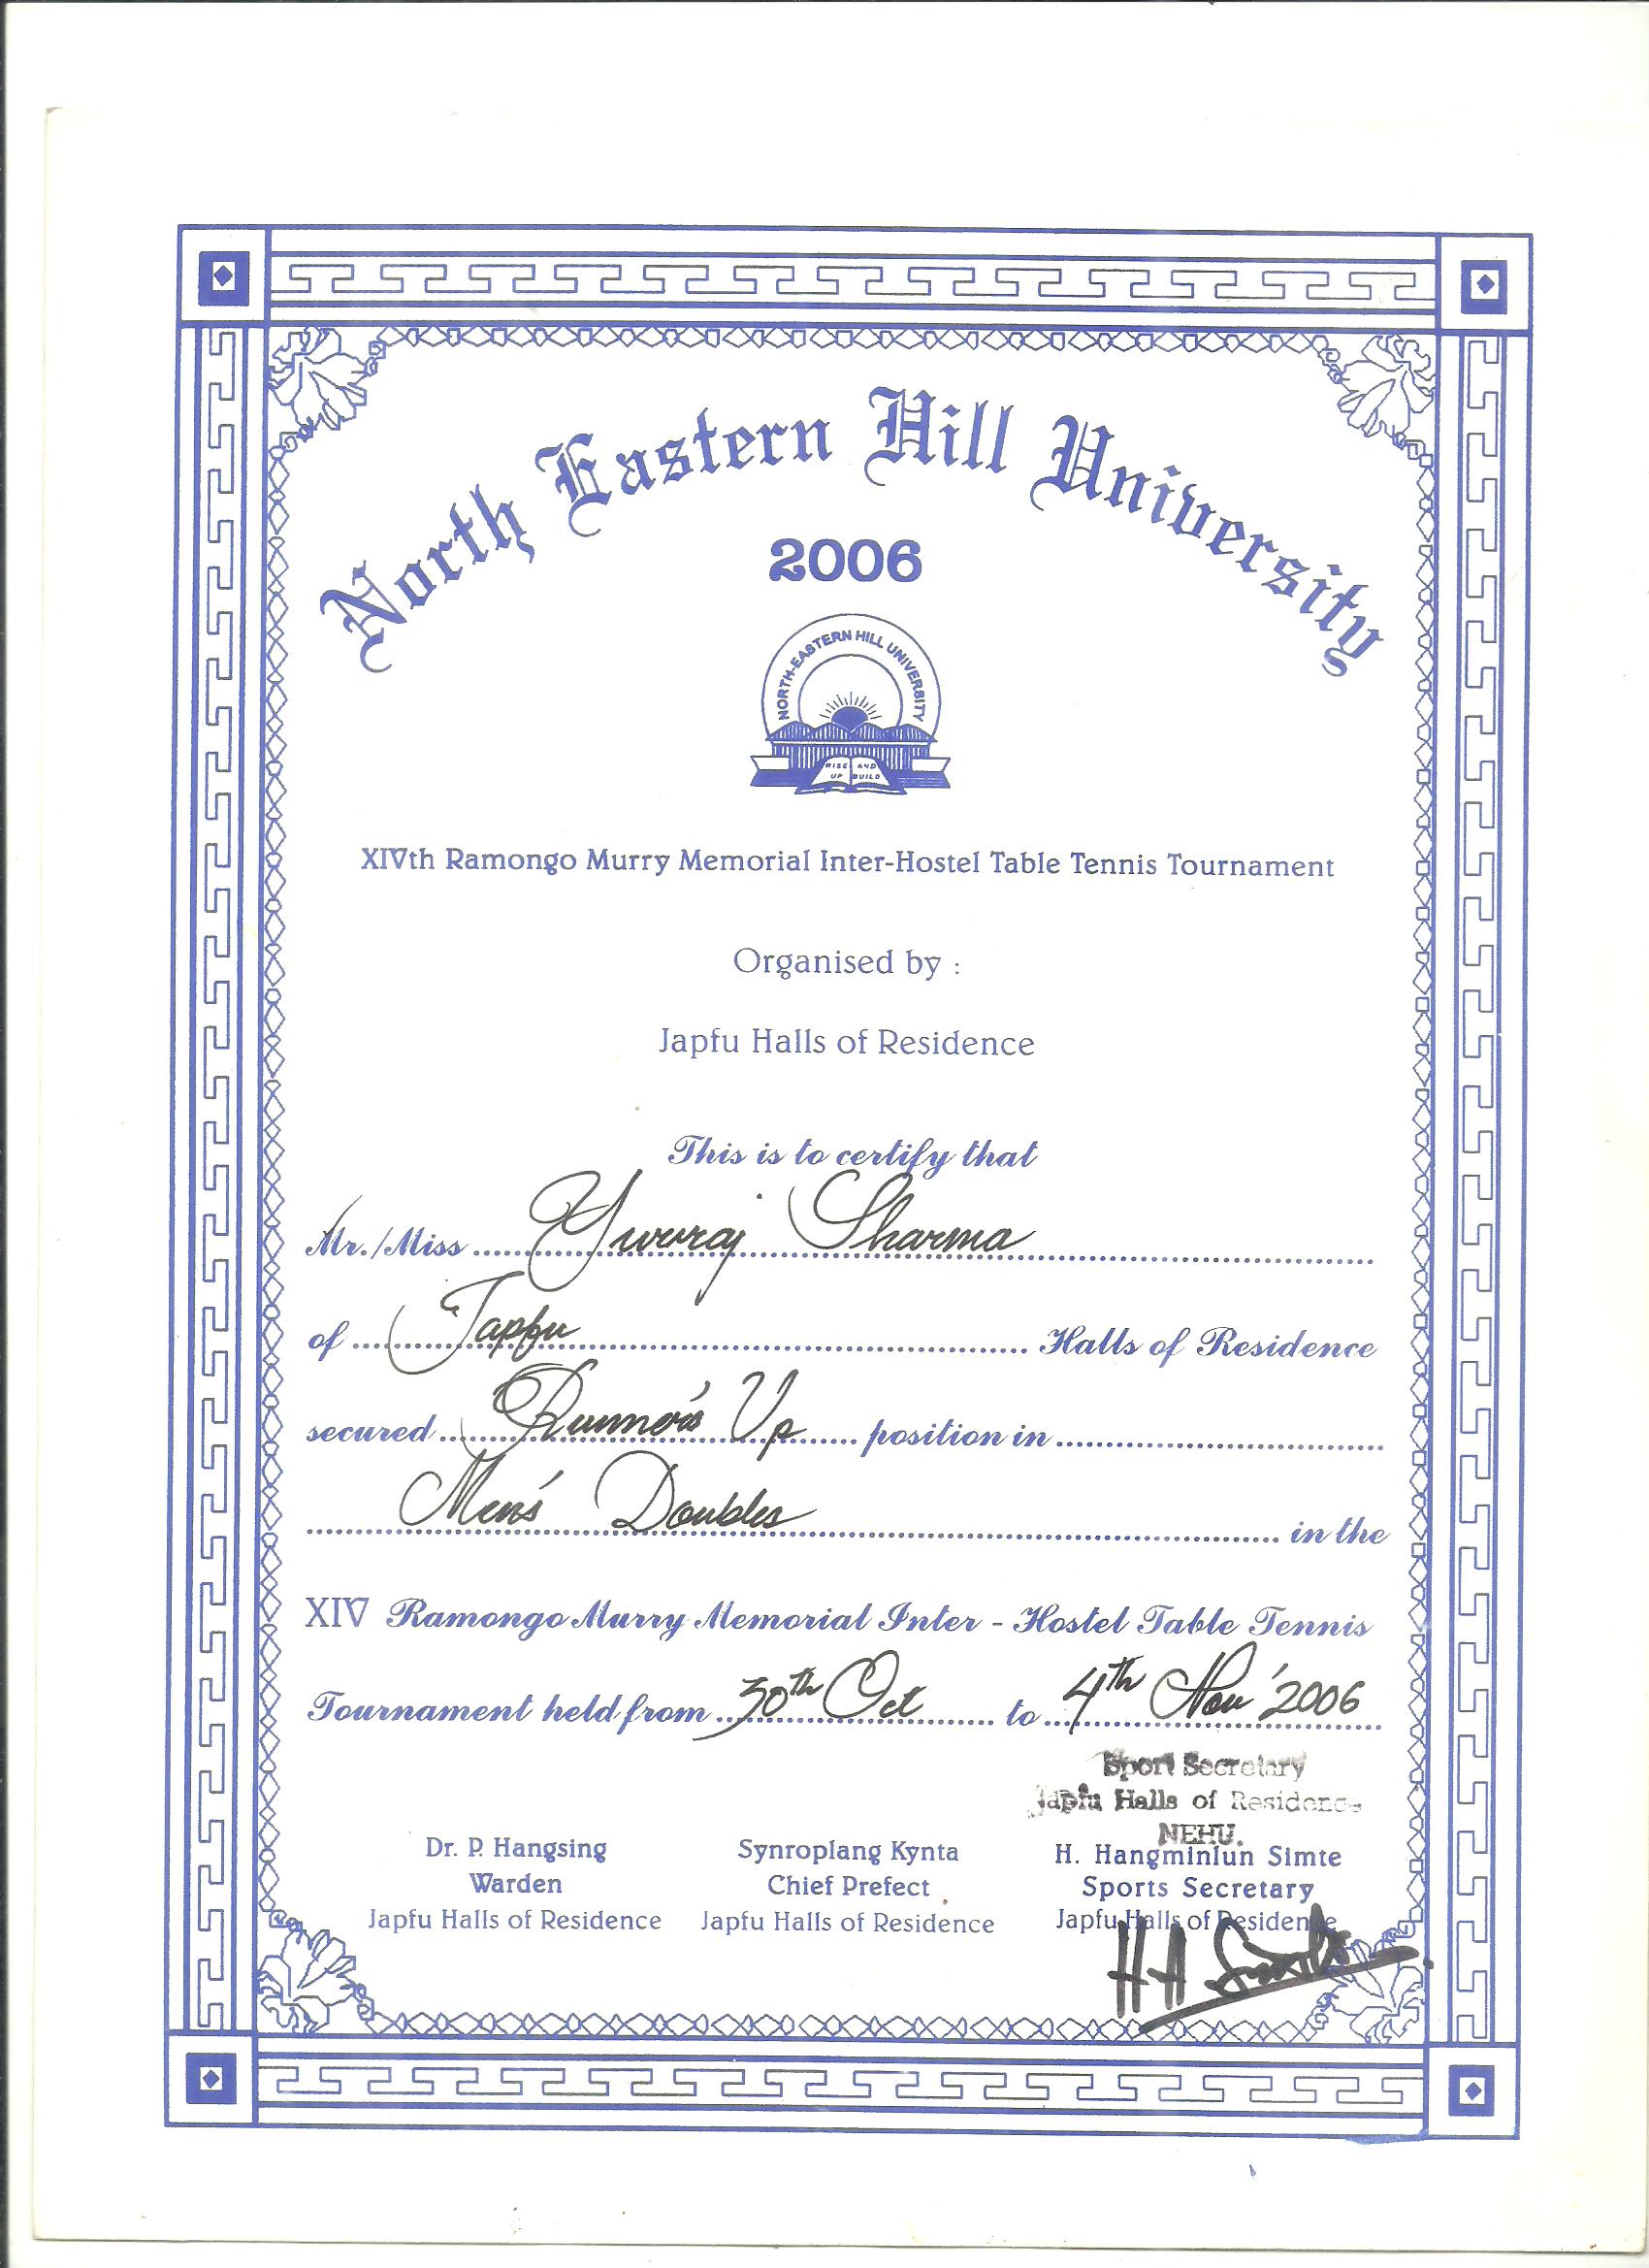 North Eastern Hill University
2006
NORTH-EASTERN HILL UNIVERSITY
RISE AND
UP BUILD
XIVth Ramongo Murry Memorial Inter-Hostel Table Tennis Tournament
Organised by :
Japfu Halls of Residence
This is to certify that
Mr./Miss Yuvraj Sharma
of Japfu Halls of Residence
secured Runner's Up position in
Men's Doubles in the
XIV Ramongo Murry Memorial Inter - Hostel Table Tennis
Tournament held from 30th Oct to 4th Nov '2006
Sport Secretary
Japfu Halls of Residence
NEHU.
Dr. P. Hangsing Synroplang Kynta H. Hangminlun Simte
Warden Chief Prefect Sports Secretary
Japfu Halls of Residence Japfu Halls of Residence Japfu Halls of Residence